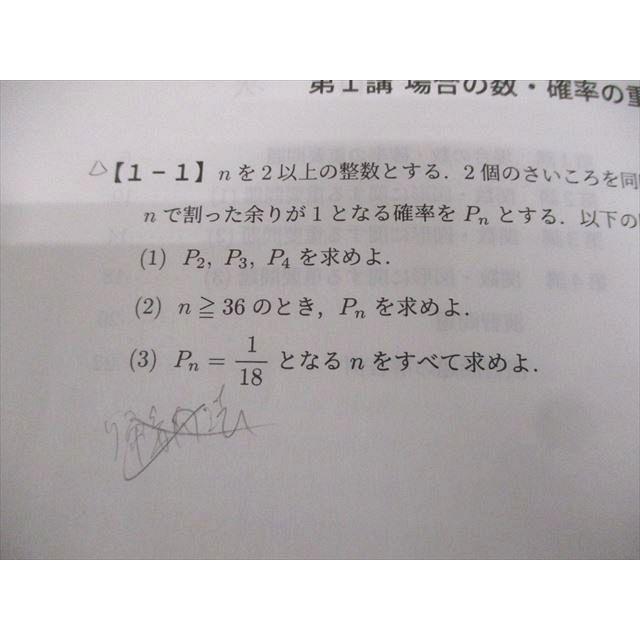 第1講 場合の数・確率の重
【1-1】 nを2以上の整数とする. 2個のさいころを同
nで割った余りが1となる確率を Pₙ とする. 以下の
(1) P₂, P₃, P₄ を求めよ.
(2) n ≧ 36 のとき, Pₙ を求めよ.
(3) Pₙ = 1/18 となる n をすべて求めよ.